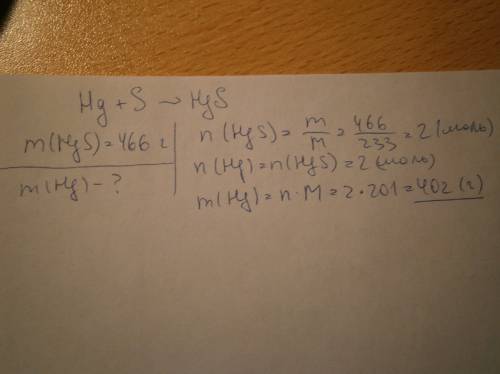 Hg + S → HgS
m(HgS) = 466 г
m(Hg) - ?
n(HgS) = m/M = 466/233 = 2 (моль)
n(Hg) = n(HgS) = 2 (моль)
m(Hg) = n·M = 2·201 = 402 (г)